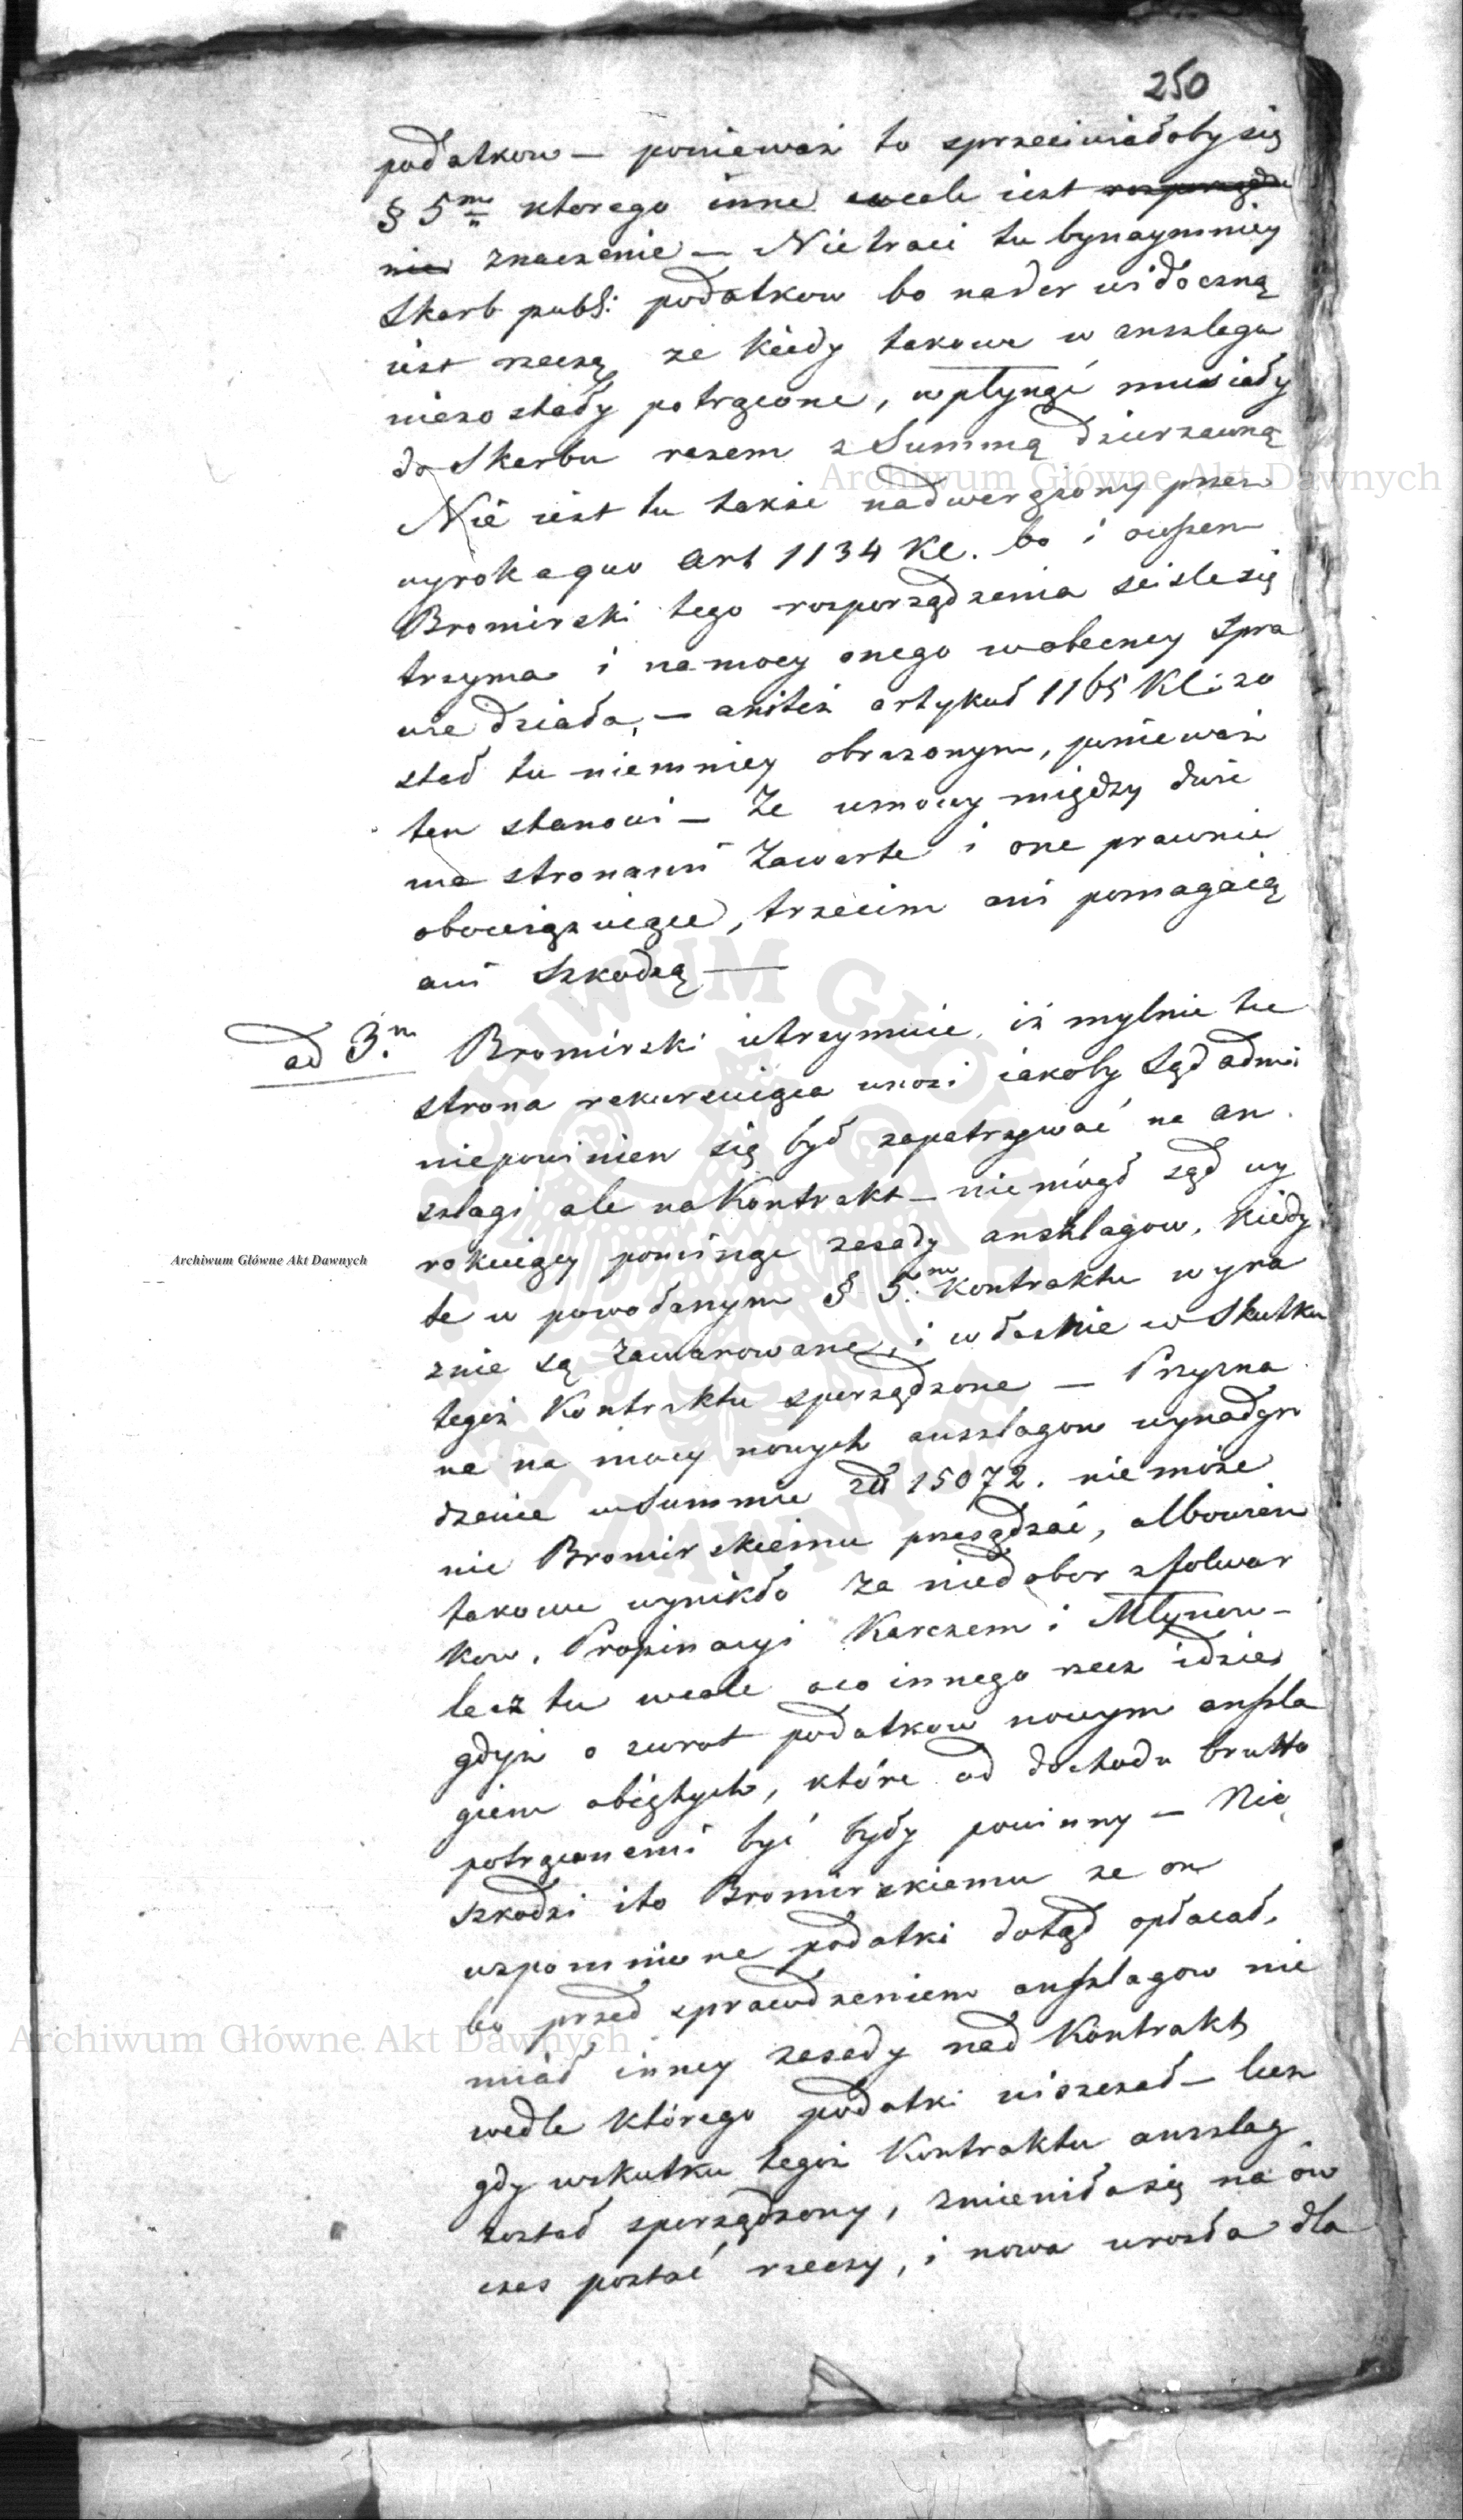 250
podatkow — poniewaz to sprzeciwiałoby się
§ 5me ktorego inne wcale iest rozporządze
nie znaczenie — Nietraci tu bynaymniey
Skarb publ: podatkow bo nader widoczną
iest rzeczą ze kiedy takowe w anszlagu
niezostały potrącone, wpłynąć musiały
do Skarbu razem z Summą dzierzawną
Nie iest tu takze nadwerężony przez
wyrok a quo Art 1134 KC. bo i owszem
Bromirski tego rozporządzenia sciśle się
trzyma i na mocy onego w obecney spra
wie działa, — anitez artykuł 1165 KC: zo
stał tu niemniey obrazonym, poniewaz
ten stanowi — Ze umowy między dwie
ma stronami Zawarte i one prawnie
obowiązuiące, trzecim ani pomagaią
ani Szkodzą —
ad 3.m Bromirski utrzymuie, iż mylnie tu
strona rekursuiąca wnosi iakoby Sąd admi
niepowinien się był zapatrywać na an
szlagi ale na Kontrakt — nie mógł sąd wy
rokuiący pominąć zasady anszlagow, kiedy
te w powołanym § 5.me Kontraktu wyra
znie są Zawarowane, i właśnie w Skutku
tegoz Kontraktu sporządzone — Przyzna
ne na mocy nowych anszlagow wynadgro
dzenie w Summie złł 15072. nie może
nic Bromirskiemu przesądzać, albowiem
takowe wynikło Za niedobor z folwar
kow, Propinacyi Karczem i Młynow —
lecz tu wcale oco innego rzecz idzie
gdyz o zwrot podatkow nowym anszla
giem obiętych, które od dochodu brutto
potrąconemi być były powinny — Nie
szkodzi ito Bromirskiemu ze on
wspomnione podatki dotąd opłacał,
bo przed sprawdzeniem anszlagow nie
miał inney zasady nad Kontrakt
wedle którego podatki uiszczał — lecz
gdy wskutku tegoz Kontraktu anszlag
został sporządzony, zmieniła się na ów
czas postać rzeczy, i nowa urosła dla
Archiwum Główne Akt Dawnych
Archiwum Główne Akt Dawnych
Archiwum Główne Akt Dawnych
ARCHIWUM GŁÓWNE AKT DAWNYCH